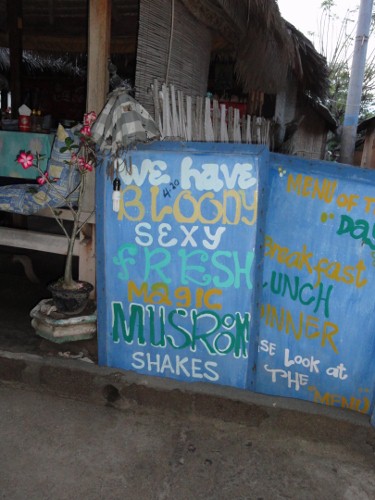 We have
4:20
BLOODY
SEXY
FRESH
MAGIC
MUSROM
SHAKES
MENU OF T
DAY
Breakfast
LUNCH
INNER
SE LOOK at
THE "MENU"